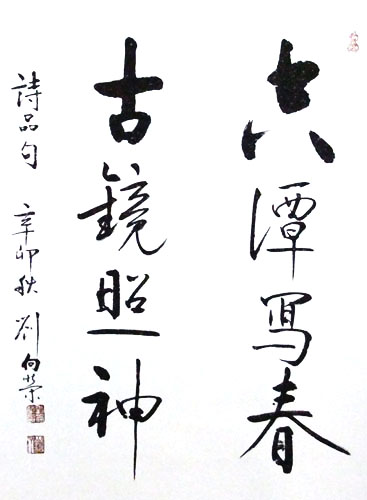 空潭寫春
古鏡照神
詩品句 辛卯秋 劉向榮